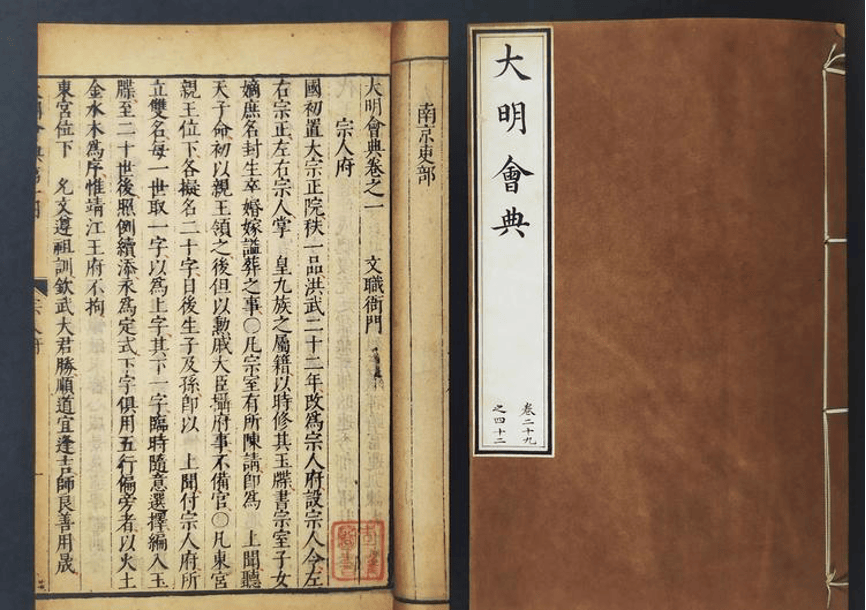 大明會典
卷二十九
之四十二
南京吏部
大明會典卷之一 文職衙門
宗人府
國初置大宗正院秩一品洪武二十二年改為宗人府設宗人令左
右宗正左右宗人掌 皇九族之屬籍以時修其玉牒書宗室子女
嫡庶名封生卒婚嫁謚葬之事〇凡宗室有所陳請卽為 上聞聽
天子命初以親王領之後但以勳戚大臣攝府事不備官〇凡東宮
親王位下各擬名二十字日後生子及孫卽以 上聞付宗人府所
立雙名每一世取一字以為上字其下一字臨時隨意選擇編入玉
牒至二十世後照例續添永為定式下字俱用五行偏旁者以火土
金水木為序惟靖江王府不拘
東宮位下 允文遵祖訓欽武大君勝順道宜逢吉師良善用晟